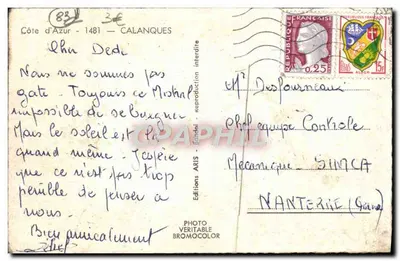 83
3€
Côte d'Azur - 1481 - CALANQUES
Cher Dédé
Nous ne sommes pas
gaté. Toujours ce Mistral
impossible de se baigner.
Mais le soleil est là
quand même. J'espère
que ce n'est pas trop
pénible de penser à
nous.
Bien amicalement
Editions ARIS - reproduction interdite
PHOTO
VERITABLE
BROMOCOLOR
REPUBLIQUE FRANÇAISE
0,25
15F
Mr Desfourneaux
Chef équipe Contrôle
Mécanique - SIMCA
NANTERRE (Seine)